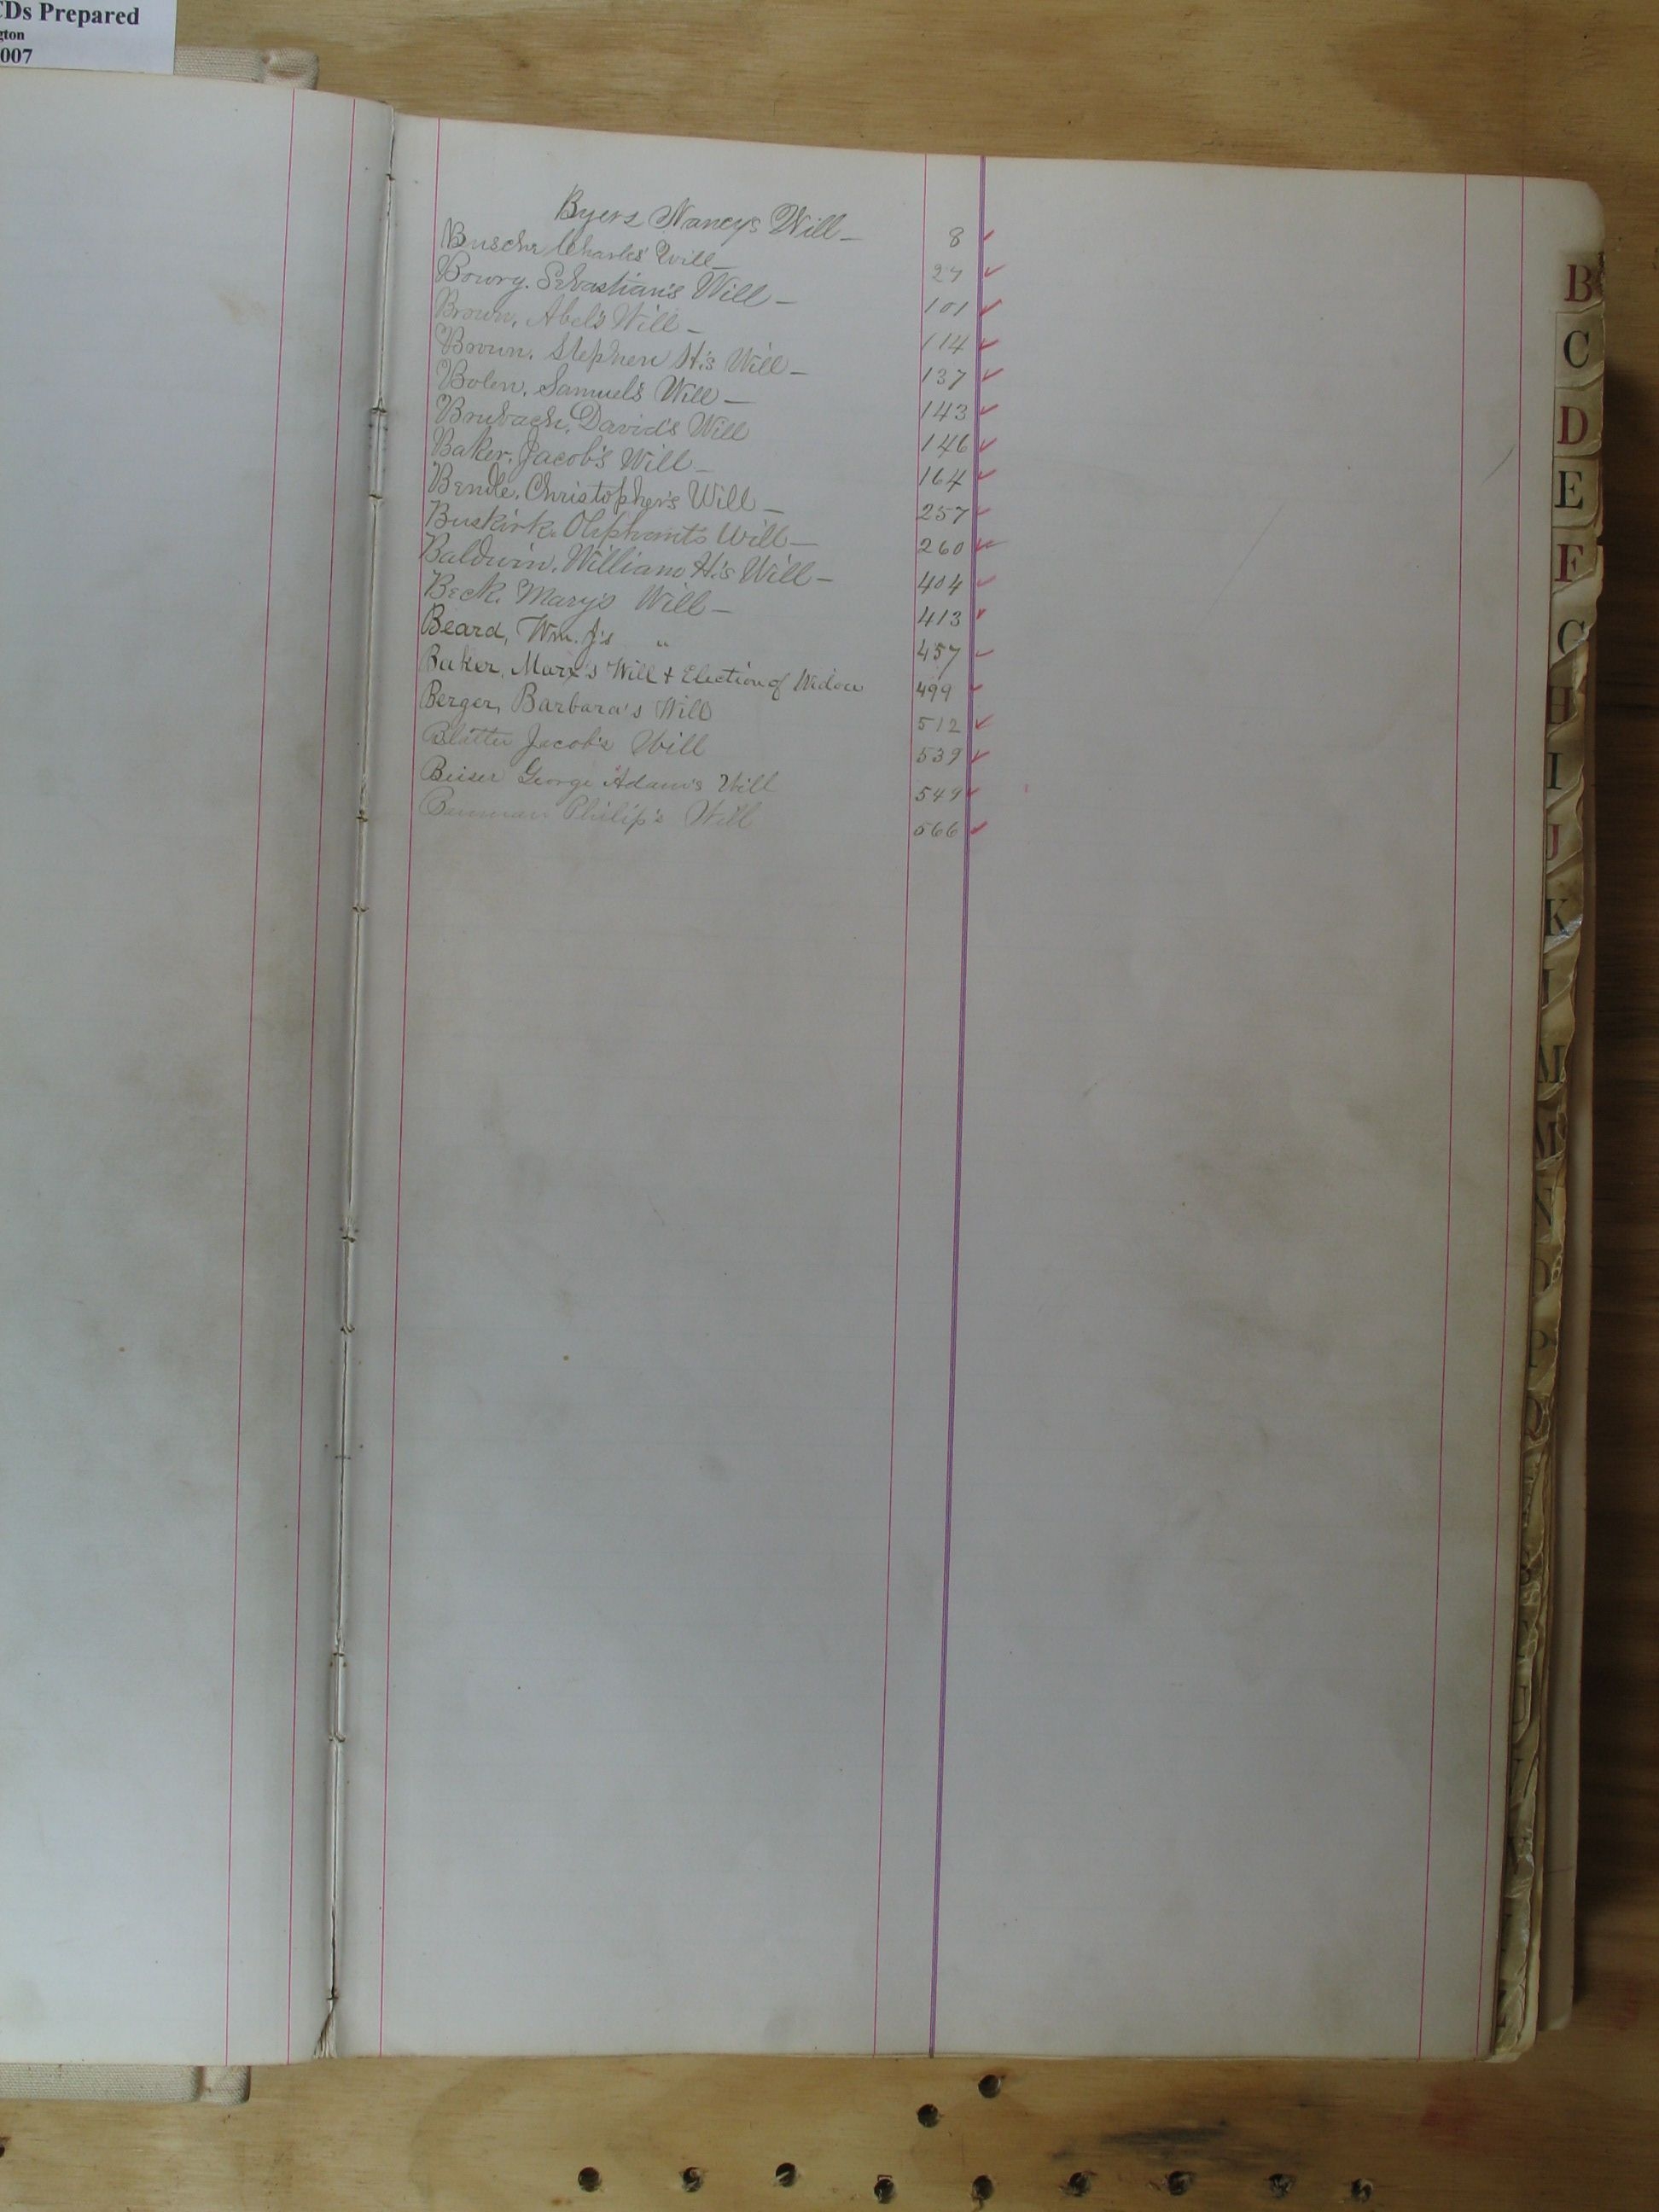 CDs Prepared
gton
007
Byers Nancy's Will — 8
Busche Charles' Will — 27
Bowry. Sebastian's Will — 101
Brown, Abel's Will — 114
Brown, Stephen H.'s Will — 137
Bolen, Samuel's Will — 143
Brubach, David's Will 146
Baker, Jacob's Will — 164
Bendle, Christopher's Will — 257
Buskirk. Oliphant's Will — 260
Baldwin, William H.'s Will — 404
Beck. Mary's Will — 413
Beard, Wm. J's " 457
Baker, Marx's Will & Election of Widow 499
Berger, Barbara's Will 512
Blatter Jacob's Will 539
Beiser George Adam's Will 549
Philip's Will 566
B
C
D
E
F
G
H
I
J
K
M
P